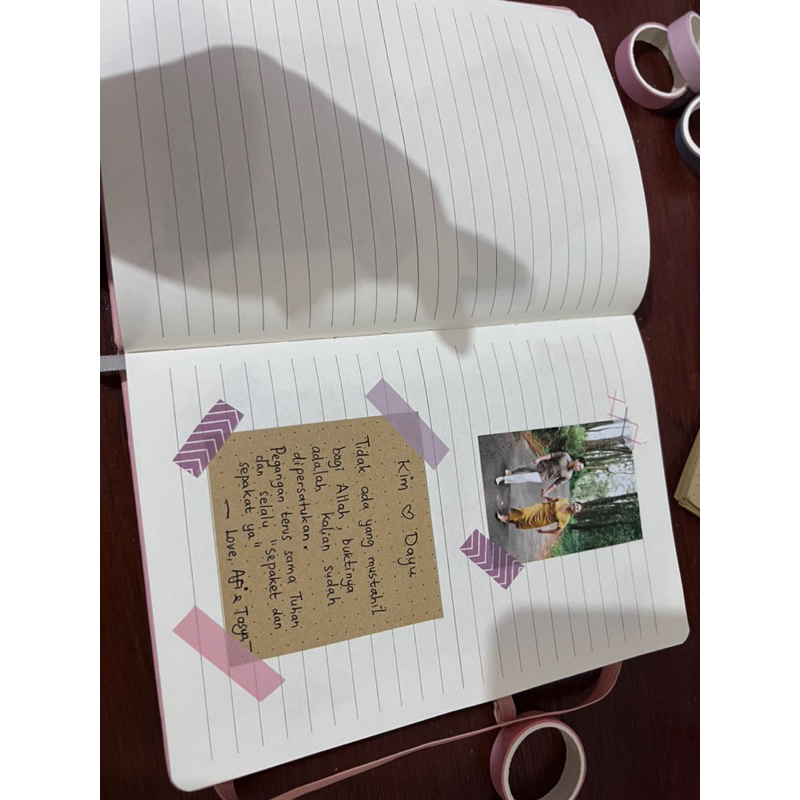 Kim ♡ Dayu
Tidak ada yang mustahil
bagi Allah, buktinya
adalah kalian sudah
dipersatukan.
Pegangan terus sama Tuhan
dan selalu "sepaket dan
sepakat ya"
— Love, Api & Tasya —